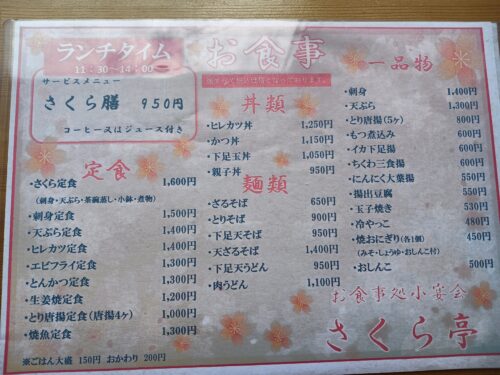 ランチタイム
11:30~14:00
サービスメニュー
さくら膳 950円
コーヒー又はジュース付き
定食
・さくら定食 1,600円
(刺身・天ぷら・茶碗蒸し・小鉢・煮物)
・刺身定食 1,500円
・天ぷら定食 1,400円
・ヒレカツ定食 1,400円
・エビフライ定食 1,300円
・とんかつ定食 1,300円
・生姜焼定食 1,200円
・とり唐揚定食(唐揚4ヶ) 1,000円
・焼魚定食 1,300円
※ごはん大盛 150円 おかわり 200円
お食事
丼類
・ヒレカツ丼 1,250円
・かつ丼 1,150円
・下足玉丼 1,050円
・親子丼 950円
麺類
・ざるそば 650円
・とりそば 900円
・下足天そば 950円
・天ざるそば 1,400円
・下足天うどん 950円
・肉うどん 1,100円
一品物
・刺身 1,400円
・天ぷら 1,300円
・とり唐揚(5ヶ) 800円
・もつ煮込み 600円
・イカ下足揚 600円
・ちくわ三食揚 600円
・にんにく大葉揚 550円
・揚出豆腐 550円
・玉子焼き 530円
・冷やっこ 480円
・焼おにぎり(各1個) 450円
(みそ・しょうゆ・おしんこ付)
・おしんこ 500円
お食事処小宴会
さくら亭